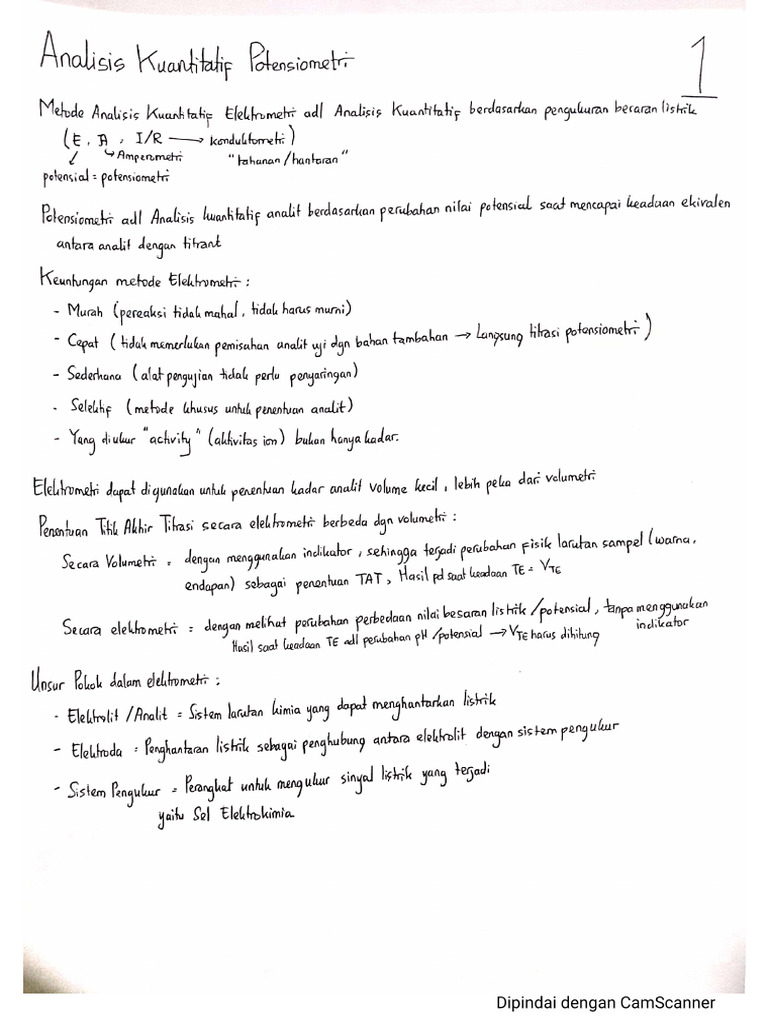 Analisis Kuantitatif Potensiometri
1
Metode Analisis Kuantitatif Elektrometri adl Analisis Kuantitatif berdasarkan pengukuran besaran listrik
(E, A, I/R → konduktometri)
↳ Amperometri "tahanan/hantaran"
potensial = potensiometri
Potensiometri adl Analisis kuantitatif analit berdasarkan perubahan nilai potensial saat mencapai keadaan ekivalen
antara analit dengan titrant
Keuntungan metode Elektrometri :
- Murah (pereaksi tidak mahal, tidak harus murni)
- Cepat ( tidak memerlukan pemisahan analit uji dgn bahan tambahan → langsung titrasi potensiometri )
- Sederhana (alat pengujian tidak perlu penyaringan)
- Selektif (metode khusus untuk penentuan analit)
- Yang diukur "activity" (aktivitas ion) bukan hanya kadar.
Elektrometri dapat digunakan untuk penentuan kadar analit volume kecil, lebih peka dari volumetri
Penentuan Titik Akhir Titrasi secara elektrometri berbeda dgn volumetri :
Secara Volumetri = dengan menggunakan indikator, sehingga terjadi perubahan fisik larutan sampel (warna,
endapan) sebagai penentuan TAT, Hasil pd saat keadaan TE = VTE
Secara elektrometri = dengan melihat perubahan perbedaan nilai besaran listrik/potensial, tanpa menggunakan
indikator
Hasil saat keadaan TE adl perubahan pH/potensial → VTE harus dihitung
Unsur Pokok dalam elektrometri :
- Elektrolit/Analit = Sistem larutan kimia yang dapat menghantarkan listrik
- Elektroda = Penghantaran listrik sebagai penghubung antara elektrolit dengan sistem pengukur
- Sistem Pengukur = Perangkat untuk mengukur sinyal listrik yang terjadi
yaitu Sel Elektrokimia
Dipindai dengan CamScanner